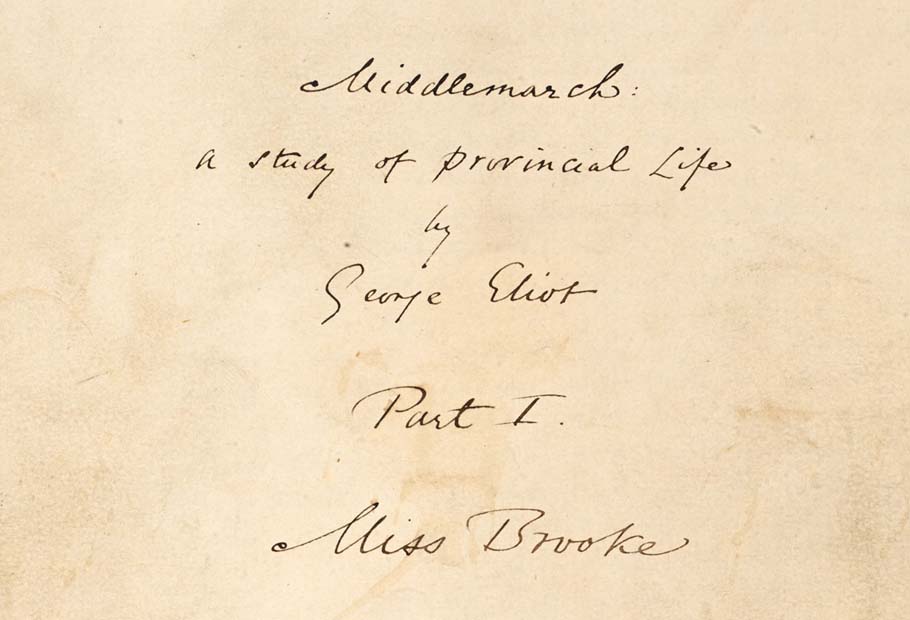 Middlemarch:
a study of provincial Life
by
George Eliot
Part I.
Miss Brooke